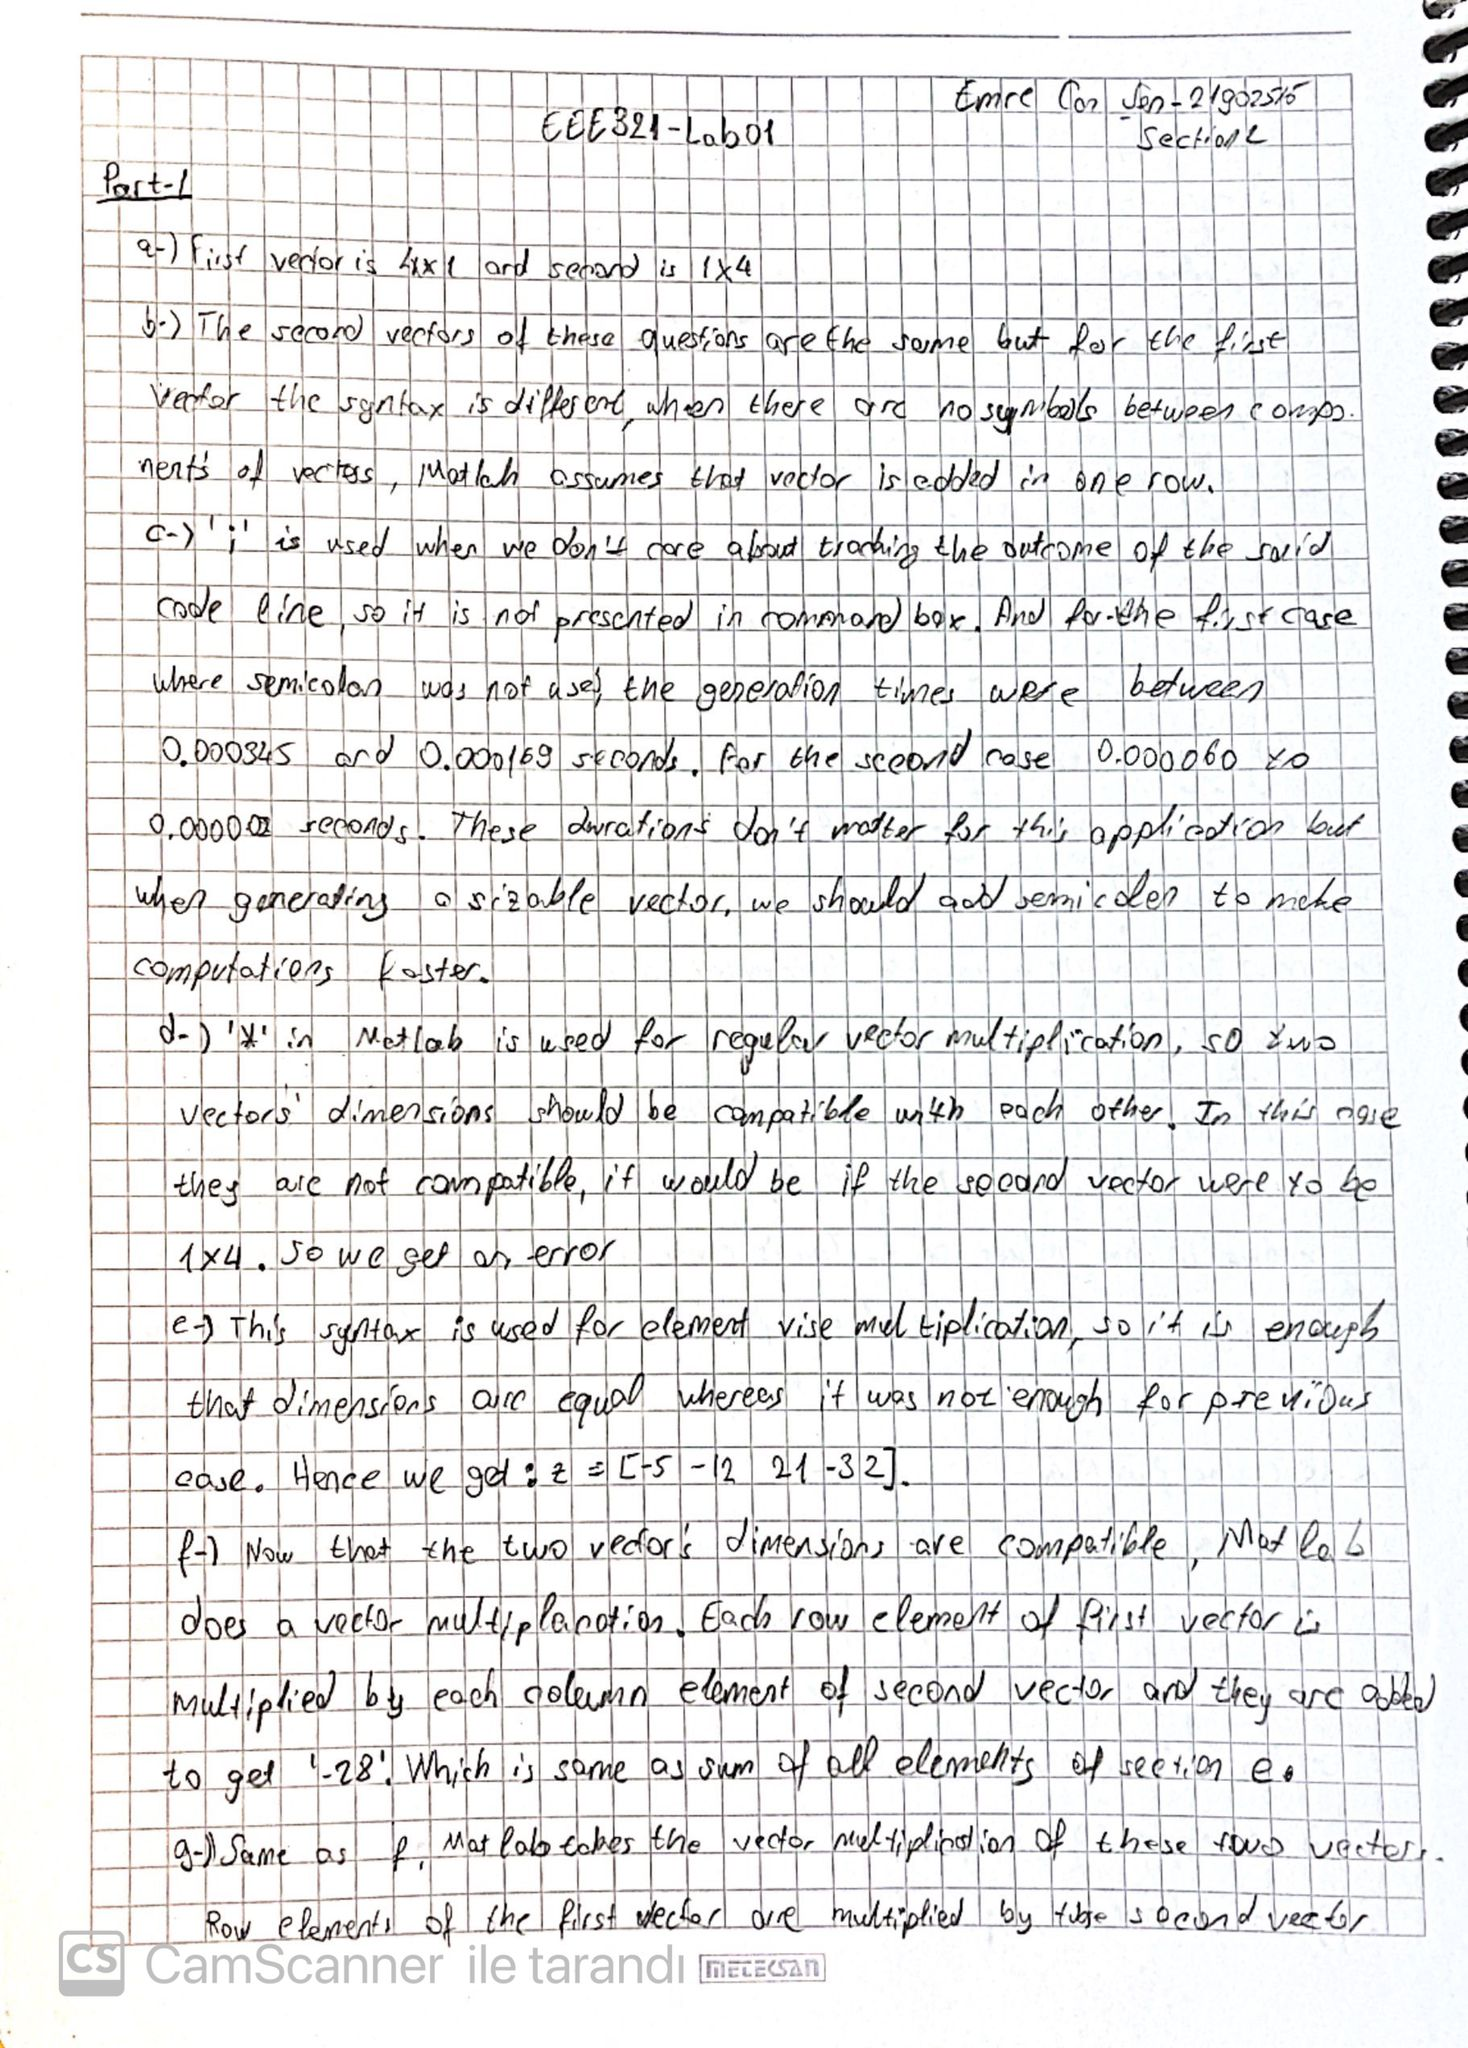 Emre Can Şen - 21902515
EEE321-Lab01
Section 2
Part-1
a-) First vector is 4x1 and second is 1x4
b-) The second vectors of these questions are the same but for the first
vector the syntax is different, when there are no symbols between compo-
nents of vectors, Matlab assumes that vector is added in one row.
c-) ';' is used when we don't care about tracking the outcome of the said
code line, so it is not presented in command box. And for the first case
where semicolon was not used, the generation times were between
0.000345 and 0.000169 seconds. For the second case 0.000060 to
seconds. These durations don't matter for this application but
when generating a sizable vector, we should add semicolen to make
computations faster.
d-) '*' in Matlab is used for regular vector multiplication, so two
vectors' dimensions should be compatible with each other. In this case
they are not compatible, it would be if the second vector were to be
1x4. So we get an error
e-) This syntax is used for element vise multiplication, so it is enough
that dimensions are equal whereas it was not enough for previous
case. Hence we get : z = [-5 -12 21 -32].
f-) Now that the two vector's dimensions are compatible, Matlab
does a vector multiplacation. Each row element of first vector is
multiplied by each column element of second vector and they are added
to get '-28'. Which is same as sum of all elements of section e.
g-) Same as f, Matlab takes the vector multiplication of these two vectors.
Row elements of the first vector are multiplied by second vector
CS CamScanner ile tarandı
METEKSAN